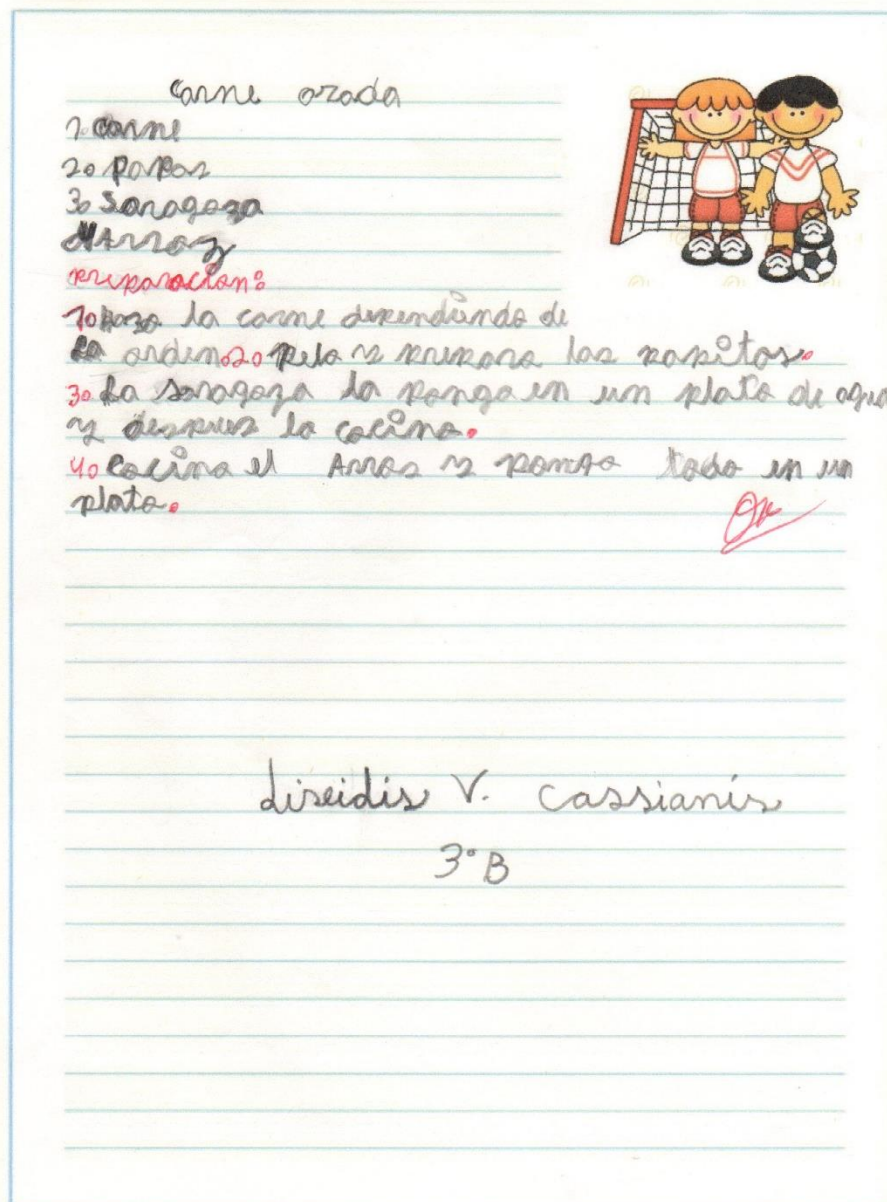 Carne azada
1. carne
2. papas
3. Saragoza
4 Arroz
preparacion:
1. Aza la carne dependiendo de
La orden. 2. Pela y prepara las papitas.
3. La saragoza la ponga en un plato de agua
y despues la cocina.
4. Cocina el Arros y ponga todo en un
plato.
Ok
Liseidis V. Cassianis
3° B